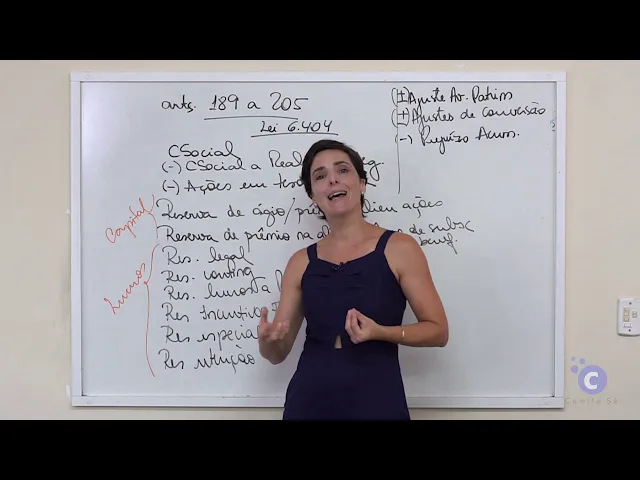 arts. 189 a 205
Lei 6.404
CSocial
(-) CSocial a Real
(-) Ações em tes
Reserva de ágio/ alien ações
Reserva de prêmio na de subsc
Res. legal
Res. conting
Res. lucros a
Res Incentivo
Res especial
Res retenção
Capital
Lucros
(±) Ajuste Av. Patrim
(±) Ajustes de conversão
(-) Prejuízo Acum.
C